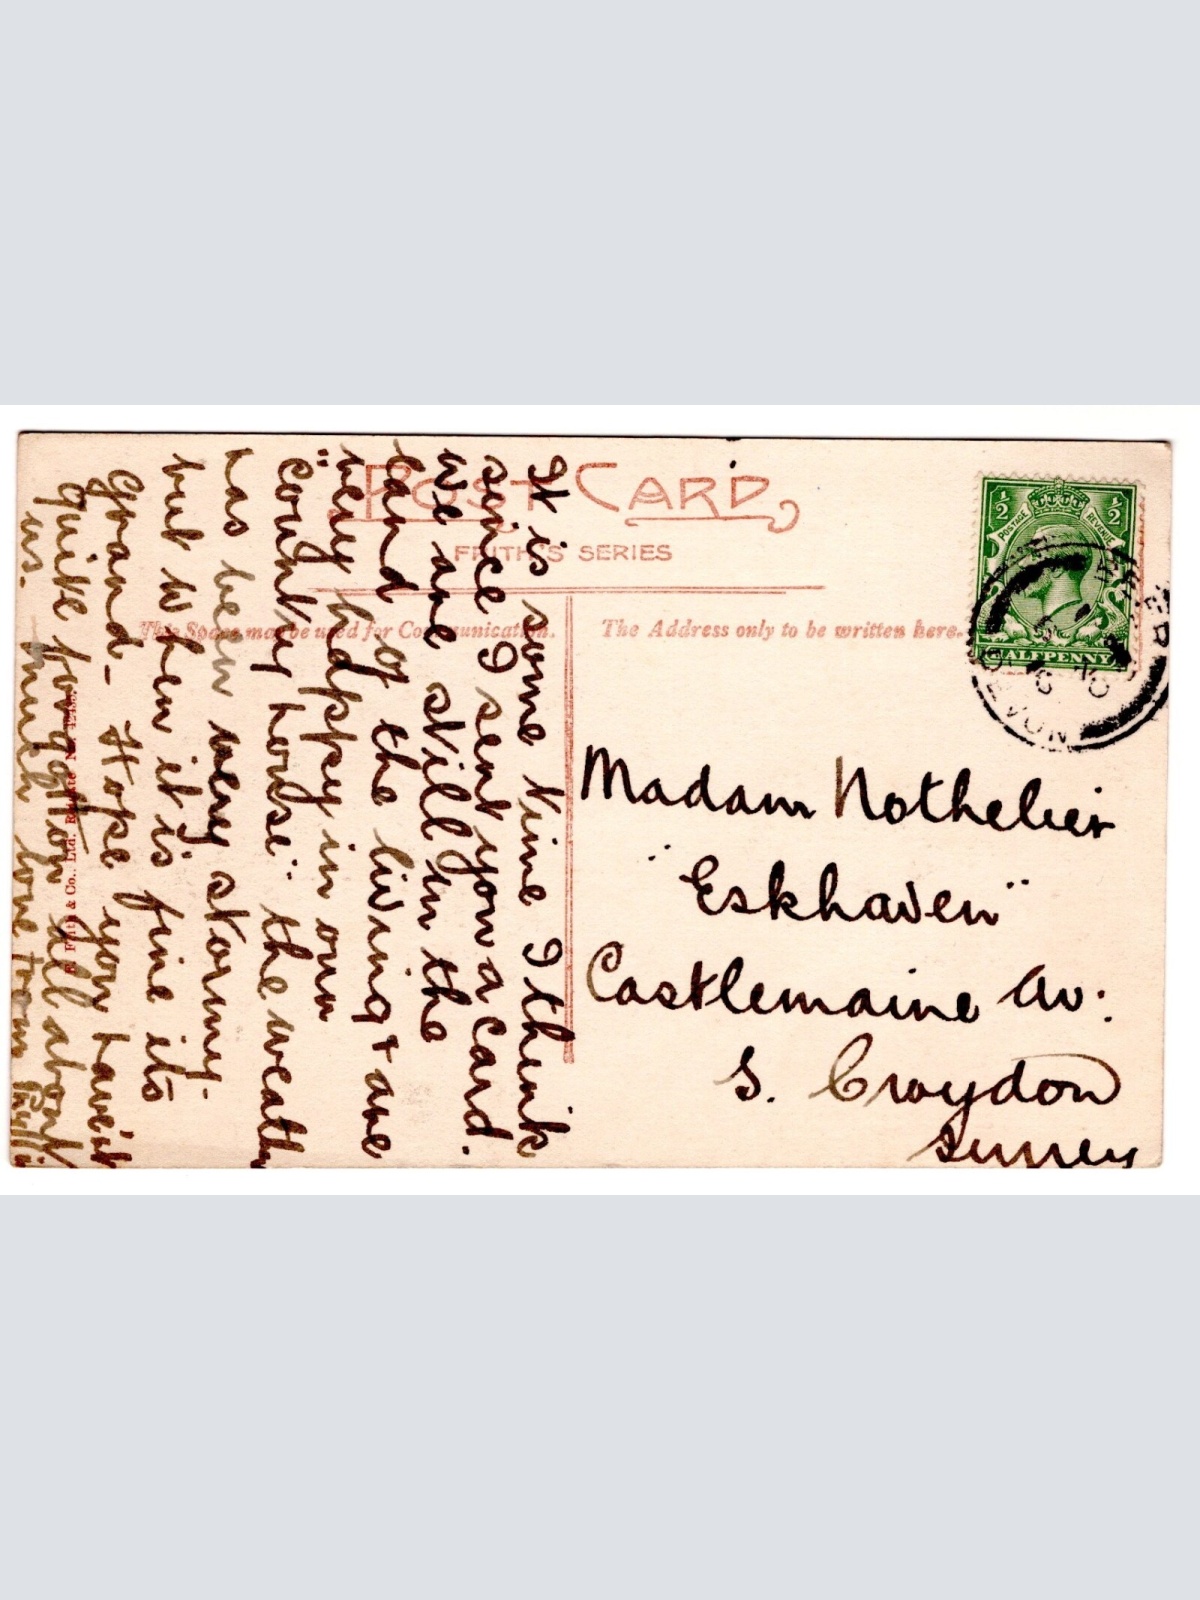 POST CARD
FRITH'S SERIES
This Space may be used for Communication.
The Address only to be written here.
It is some time I think
since I sent you a card.
We are still in the
land of the living & are
very happy in our
"country house" the weather
has been very stormy.
but when it is fine its
grand - Hope you haven't
quite forgotten all about
us. Much love from
F. Frith & Co., Ltd. Reigate No.
Madam Nothelier
"Eskhaven"
Castlemaine Av:
S. Croydon
Surrey
1/2 1/2
POSTAGE REVENUE
HALFPENNY
DEVON